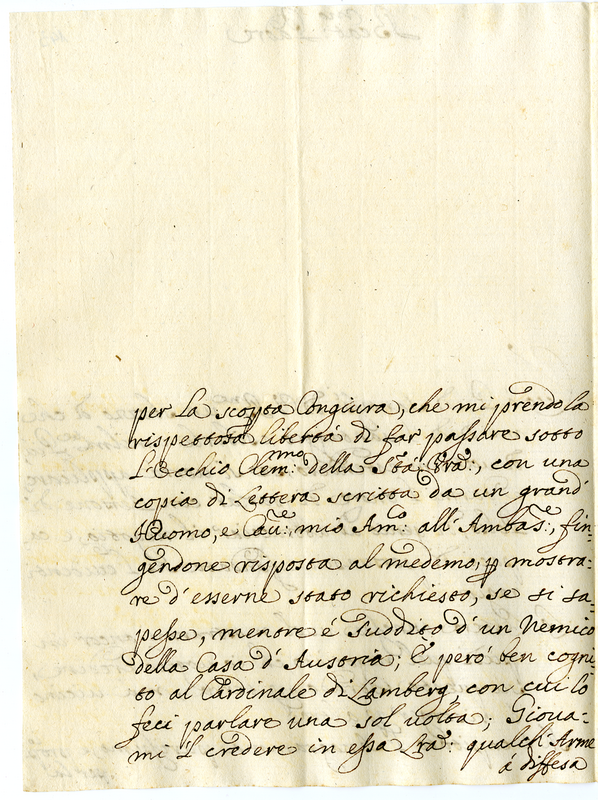 per La scoperta Congiura, che mi prendo la
rispettosa libertá di far passare sotto
L'Occhio Clem.mo: della Stá: Vra:, con una
copia di Lettera scritta da un grand'
Huomo, e Cau.e: mio Am.co: all'Ambas.e:, fin=
gendone risposta al medemo, p mostra:
re d'esserne stato richiesto, se si sa=
pesse, mentre é Suddito d'un Nemico
della Casa d'Austria; É peró ben cogni=
to al Cardinale di Lamberg, con cui lo
feci parlare una sol uolta; Gioua=
mi il credere in essa Lra: qualch'Arme
á diffesa